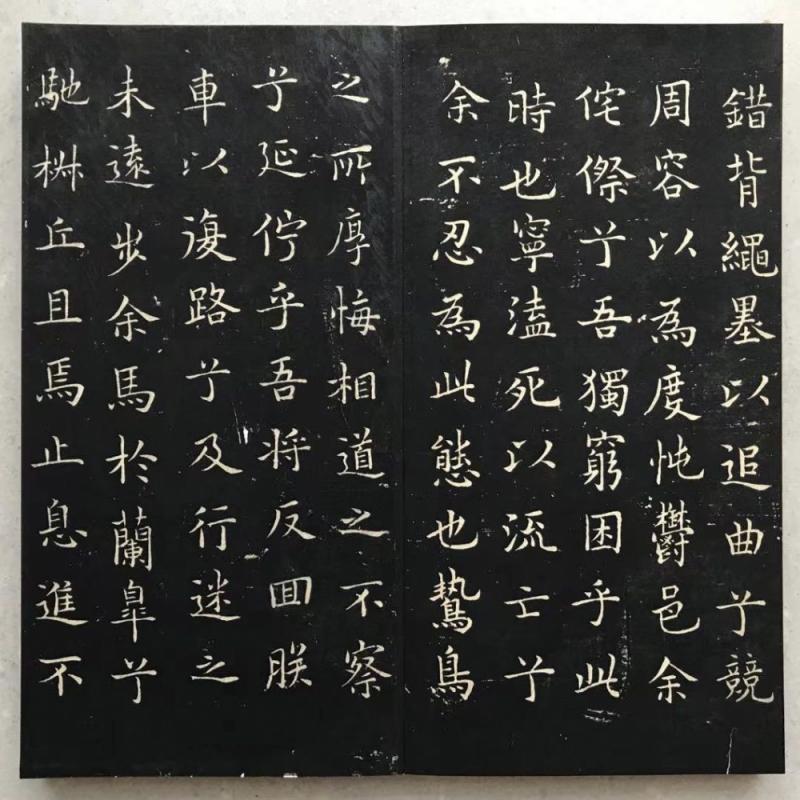 錯背繩墨以追曲兮競
周容以為度忳鬱邑余
侘傺兮吾獨窮困乎此
時也寧溘死以流亡兮
余不忍為此態也鷙鳥
之所厚悔相道之不察
兮延佇乎吾将反回朕
車以復路兮及行迷之
未遠步余馬於蘭皋兮
馳椒丘且焉止息進不